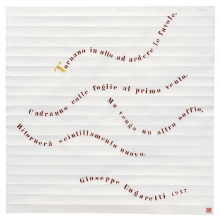 Tornano in alto ad ardere le favole.
Cadranno colle foglie al primo vento.
Ma venga un altro soffio,
Ritornerà scintillamento nuovo.
Giuseppe Ungaretti 1927